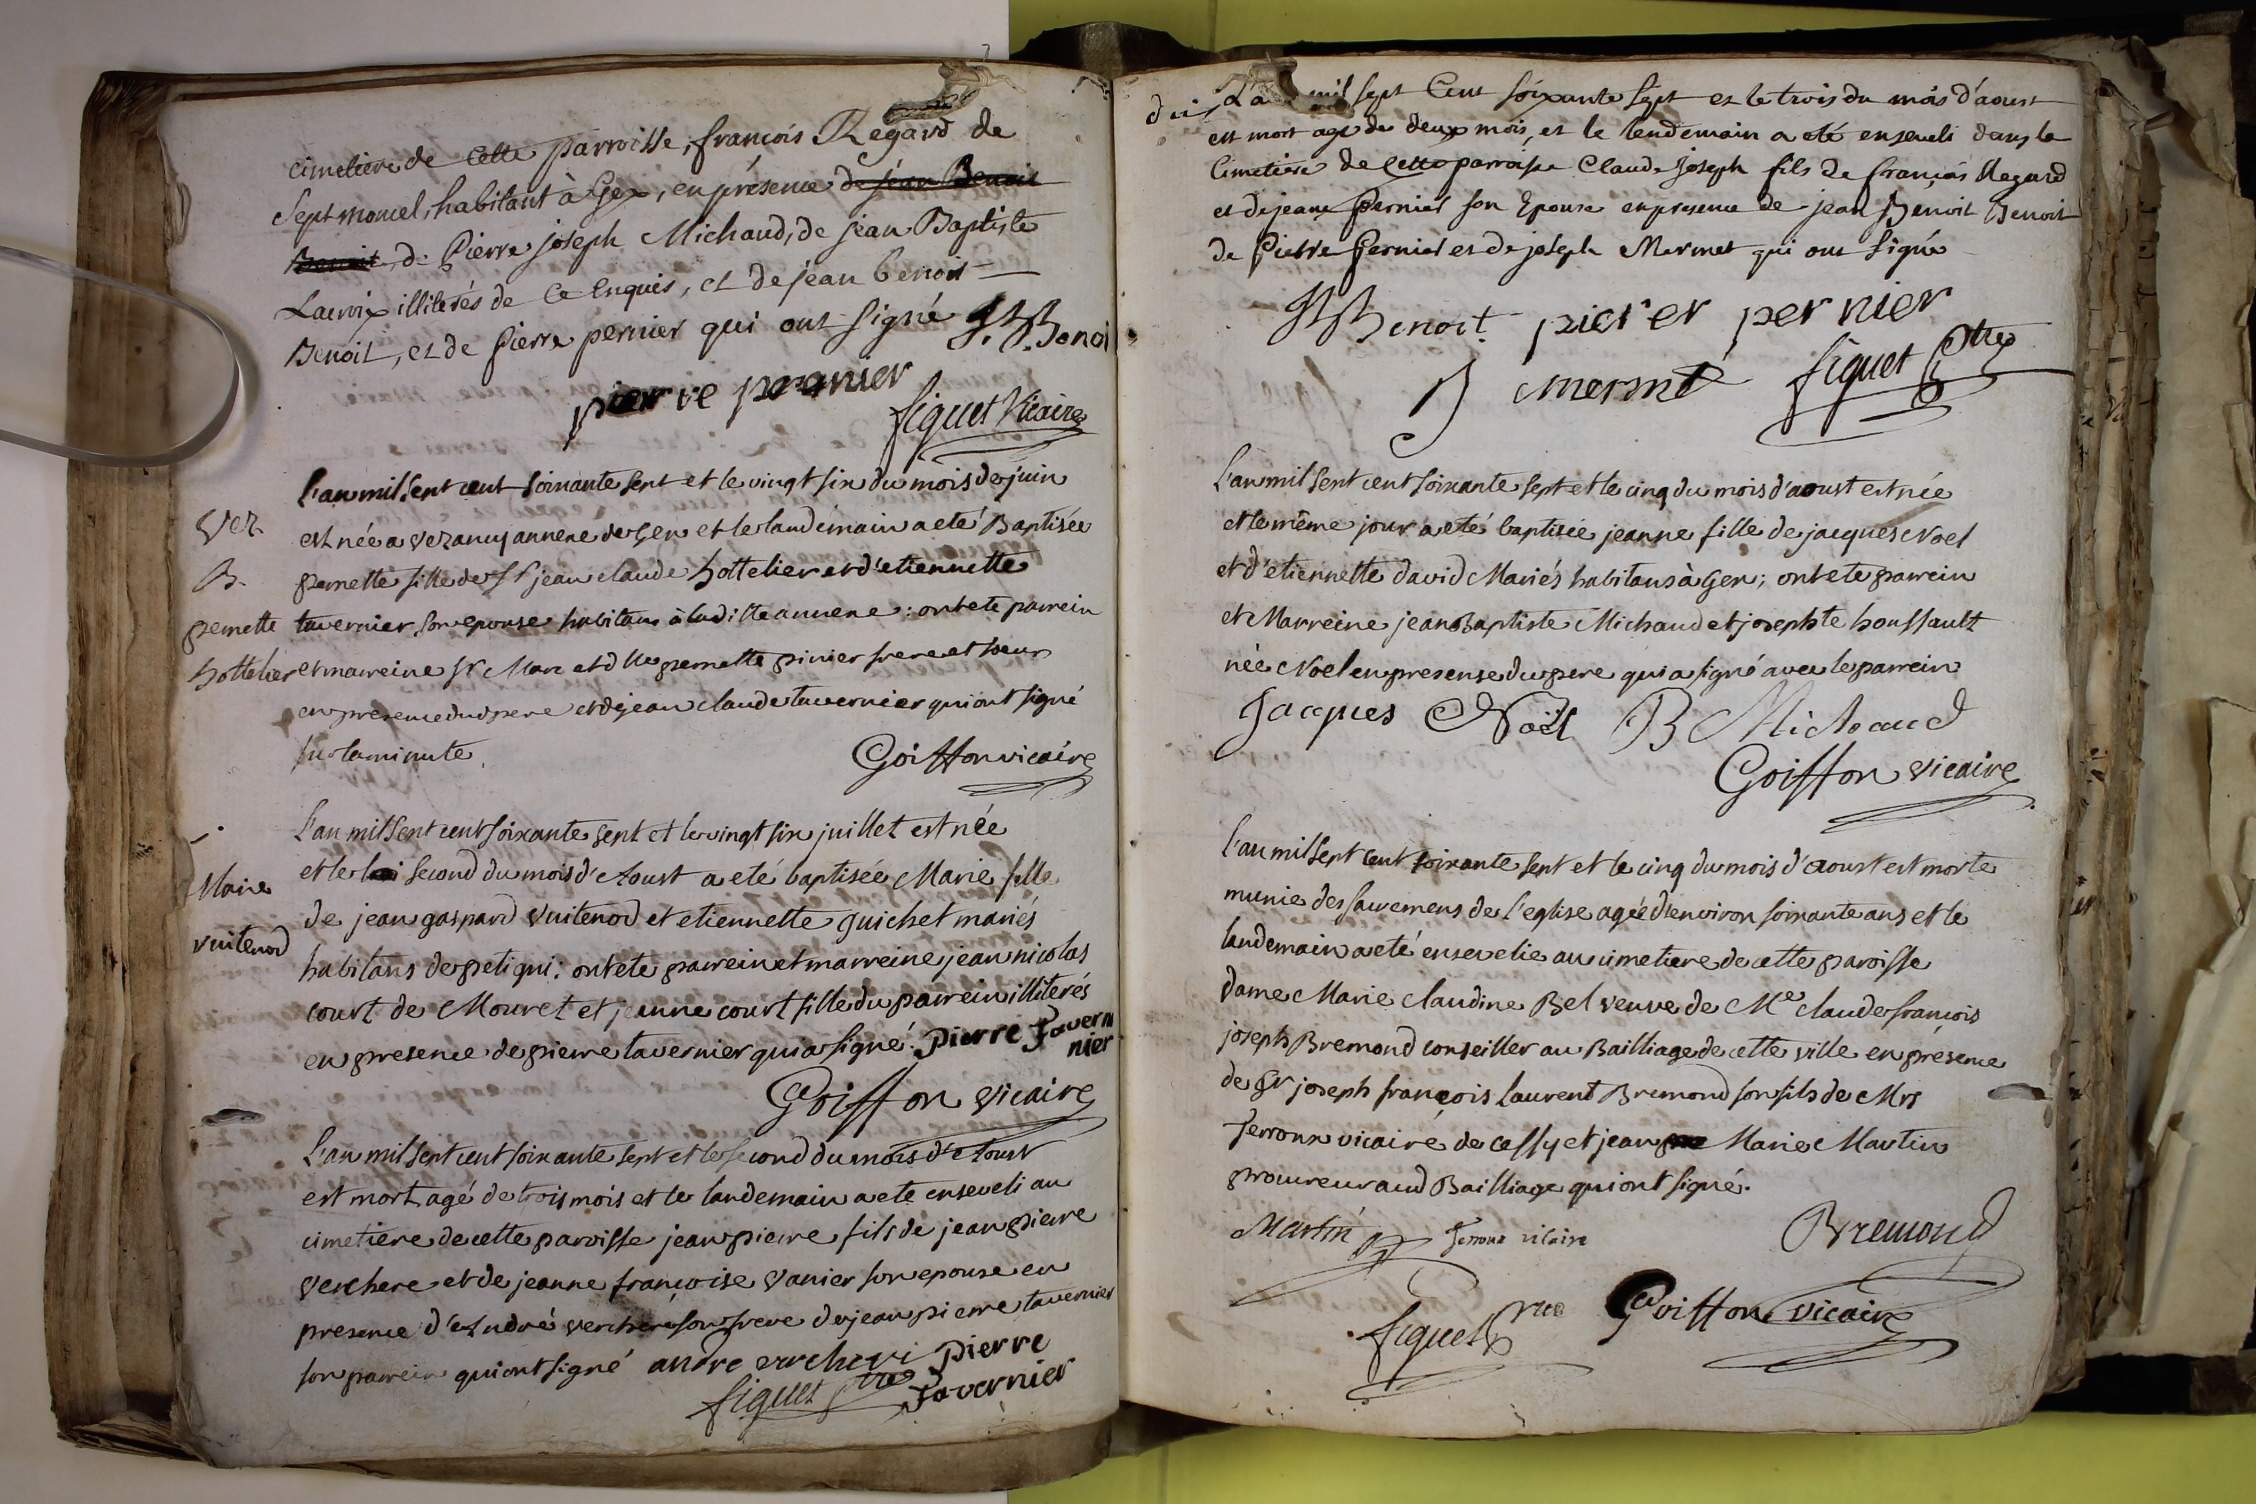 cimetiere de cette parroisse, françois Regard de
Septmoncel, habitant à Gex, en présence de jean Benoit
Benoit, de Pierre joseph Michaud, de jean Baptiste
Lacroix illiterés de ce enquis, et de jean benoit
Benoit, et de Pierre pernier qui ont signé J. B. Benoi
pierre pernier
figuet Vicaire
L'an mil sept cent soixante sept et le vingt six du mois de juin
Vez. est née a vezancy annexe de Gex et le landemain a eté Baptisée
B. pernette fille de Sr jean claude hottelier et d'etiennette
pernette tavernier son epouse habitans à laditte annexe : ont eté parrein
hottelier et marreine Sr Marc et dlle pernette pinier frere et soeur
en presence du pere et de jean claude tavernier qui ont signé
sur la minute.
Goiffon vicaire
L'an mil sept cent soixante sept et le vingt six juillet est née
et le second du mois d'Aoust a eté baptisée Marie fille
Marie de jean gaspard Vuitenod et etiennette guichet mariés
vuitenod habitans de petigni : ont eté parrein et marreine jean nicolas
court de Mouret et jeanne court fille du parrein illiterés
en presence de pierre tavernier qui a signé. Pierre Tavern
nier
Goiffon vicaire
L'an mil sept cent soixante sept et le second du mois d'Aoust
est mort agé de trois mois et le landemain a eté enseveli au
cimetiere de cette paroisse jean pierre fils de jean pierre
verchere et de jeanne françoise vanier son epouse en
presence d'André verchere son frere de jean pierre tavernier
son parrein qui ont signé andre vercheri Pierre
Tavernier
figuet Ptre
L'an mil sept Cent soixante sept et le trois du mois d'aoust
est mort agé de deux mois, et le lendemain a eté enseveli dans le
Cimetiere de cette parroisse Claude Joseph fils de françois Regard
et de jeane Pernier son Epouse en presence de jean Benoit Benoit
de Pierre Pernier et de joseph Mermet qui ont signé
J B Benoit. pierer pernier
J mermé figuet Ptre
L'an mil sept cent soixante sept et le cinq du mois d'aoust est née
et le même jour a eté baptisée jeanne fille de jacques Noel
et d'etiennette david Mariés habitans à Gex ; ont eté parrein
et Marreine jean Baptiste Michaud et josephte houssault
née Noel en presense du pere qui a signé avec le parrein
Jacques Noël B Michaud
Goiffon vicaire
L'an mil sept cent soixante sept et le cinq du mois d'aoust est morte
munie des sacremens de l'eglise agée d'environ soixante ans et le
landemain a eté ensevelie au cimetiere de cette paroisse
dame Marie claudine Bel veuve de Me claude françois
joseph Bremond conseiller au Bailliage de cette ville en présence
de Sr joseph françois Laurent Bremond son fils de Mrs
ferroux vicaire de cessy et jean Marie Martin
procureur aud Bailliage qui ont signé.
Martin ferroux vicaire Bremond
figuet Ptre Goiffon vicaire